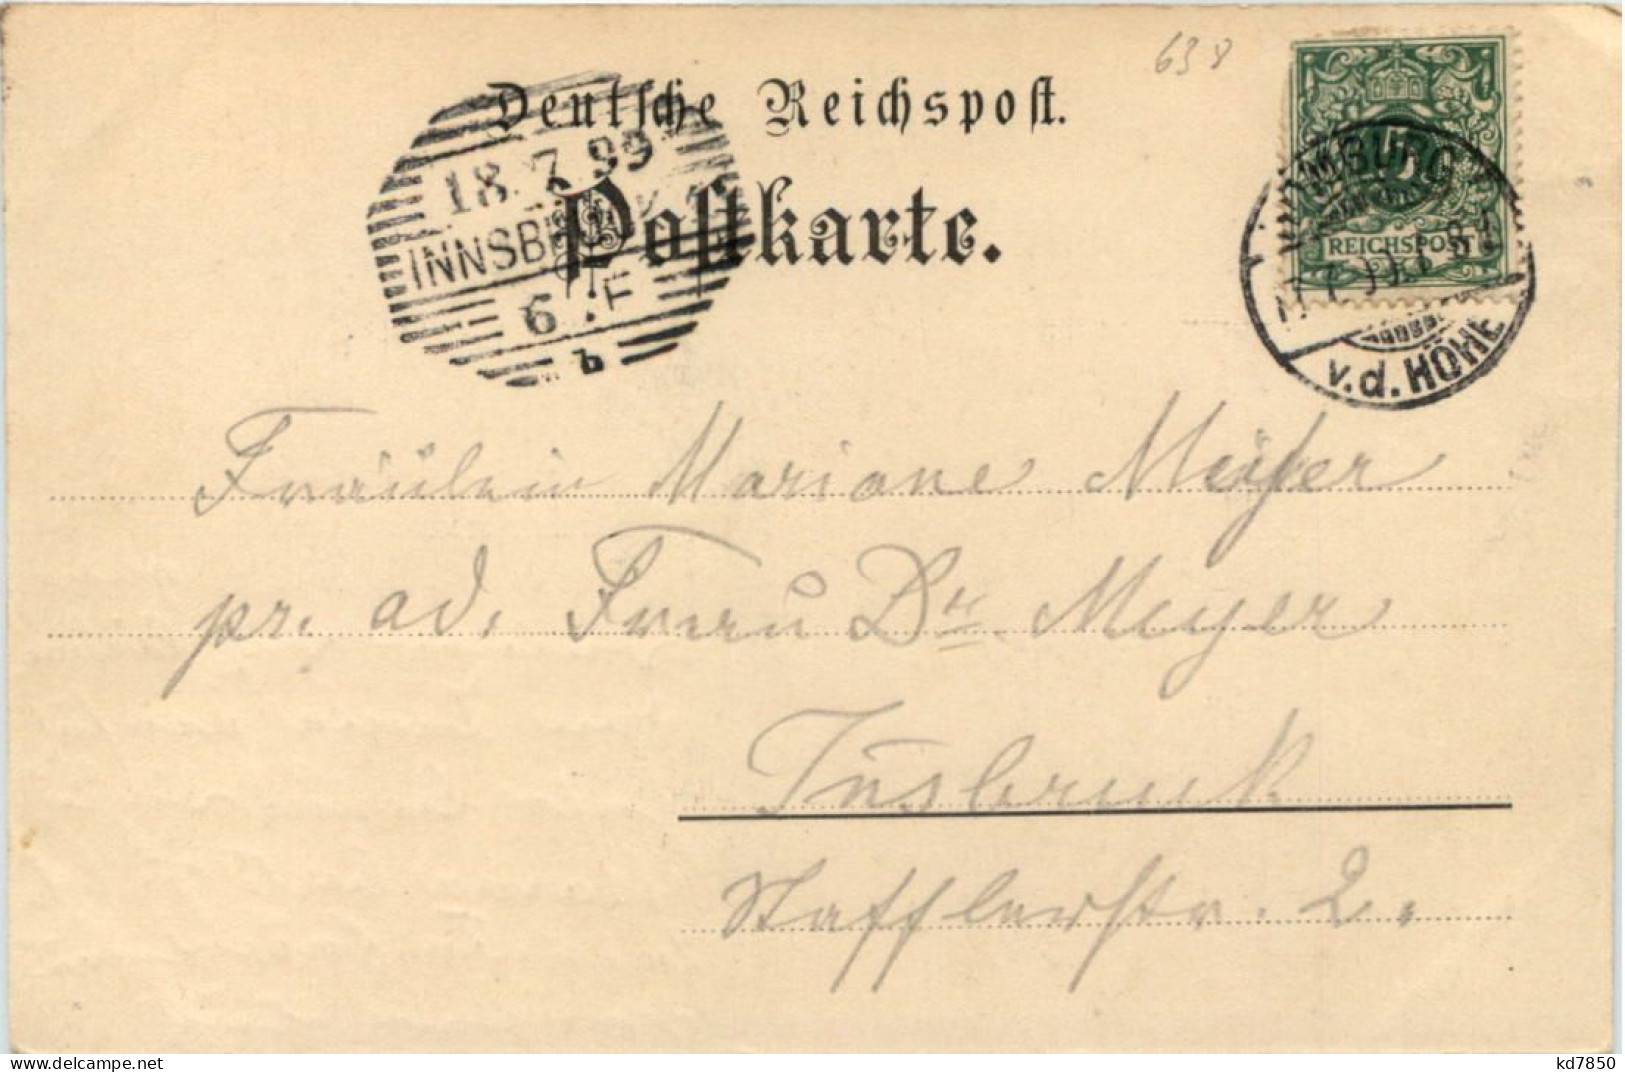 638
Deutsche Reichspost.
Postkarte.
18.7.99
INNSBRUCK
6. F
b
5
REICHSPOST
HOMBURG
v.d. HÖHE
Fräulein Mariane Meyer
pr. ad. Frau Dr Meyer
Insbruck
Stafflerstr. 2.
www.delcampe.net
kd7850